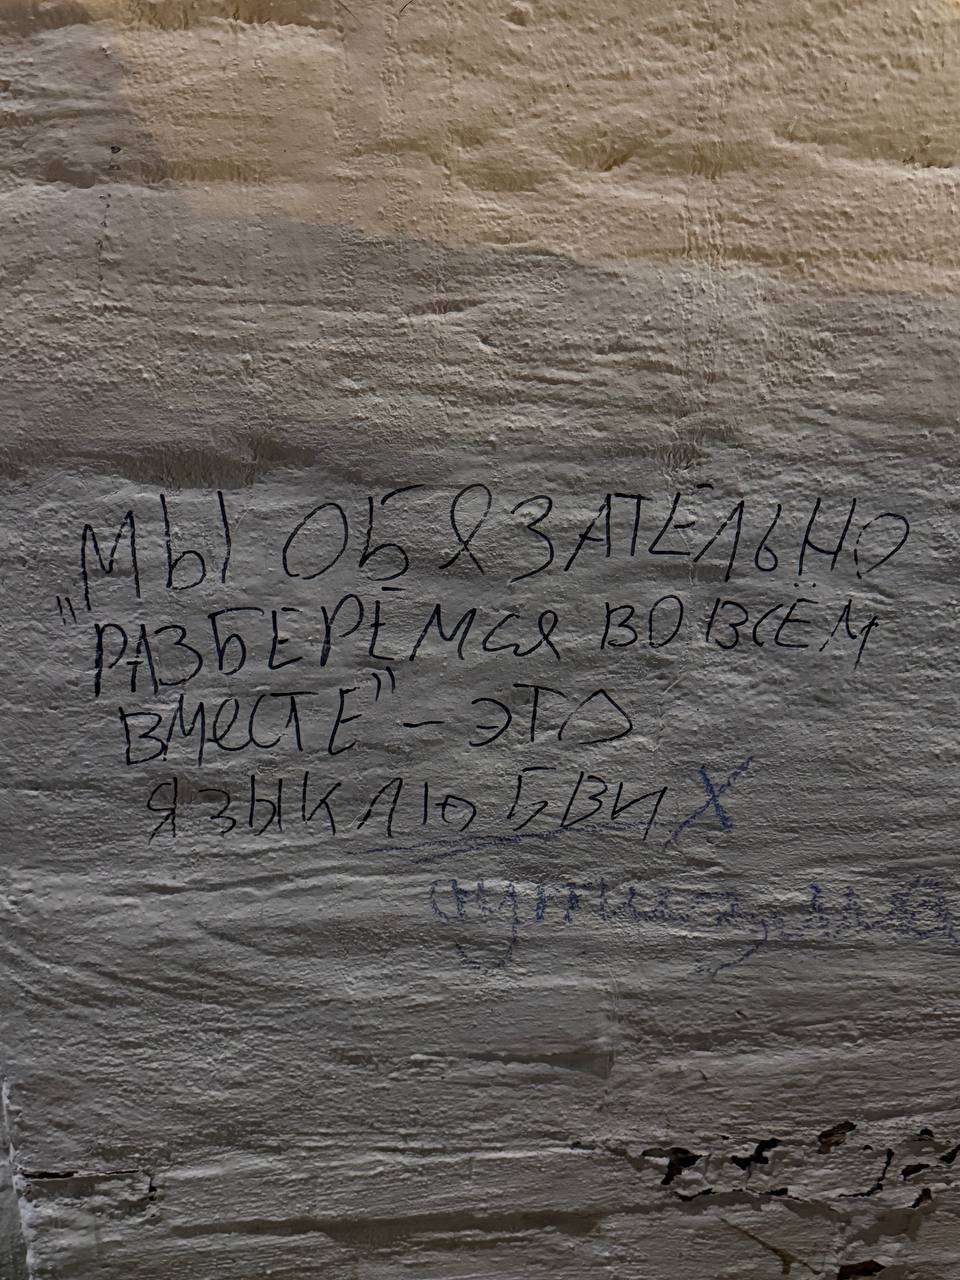 "МЫ ОБЯЗАТЕЛЬНО
РАЗБЕРЁМСЯ ВО ВСЁМ
ВМЕСТЕ" - ЭТО
ЯЗЫК ЛЮБВИ